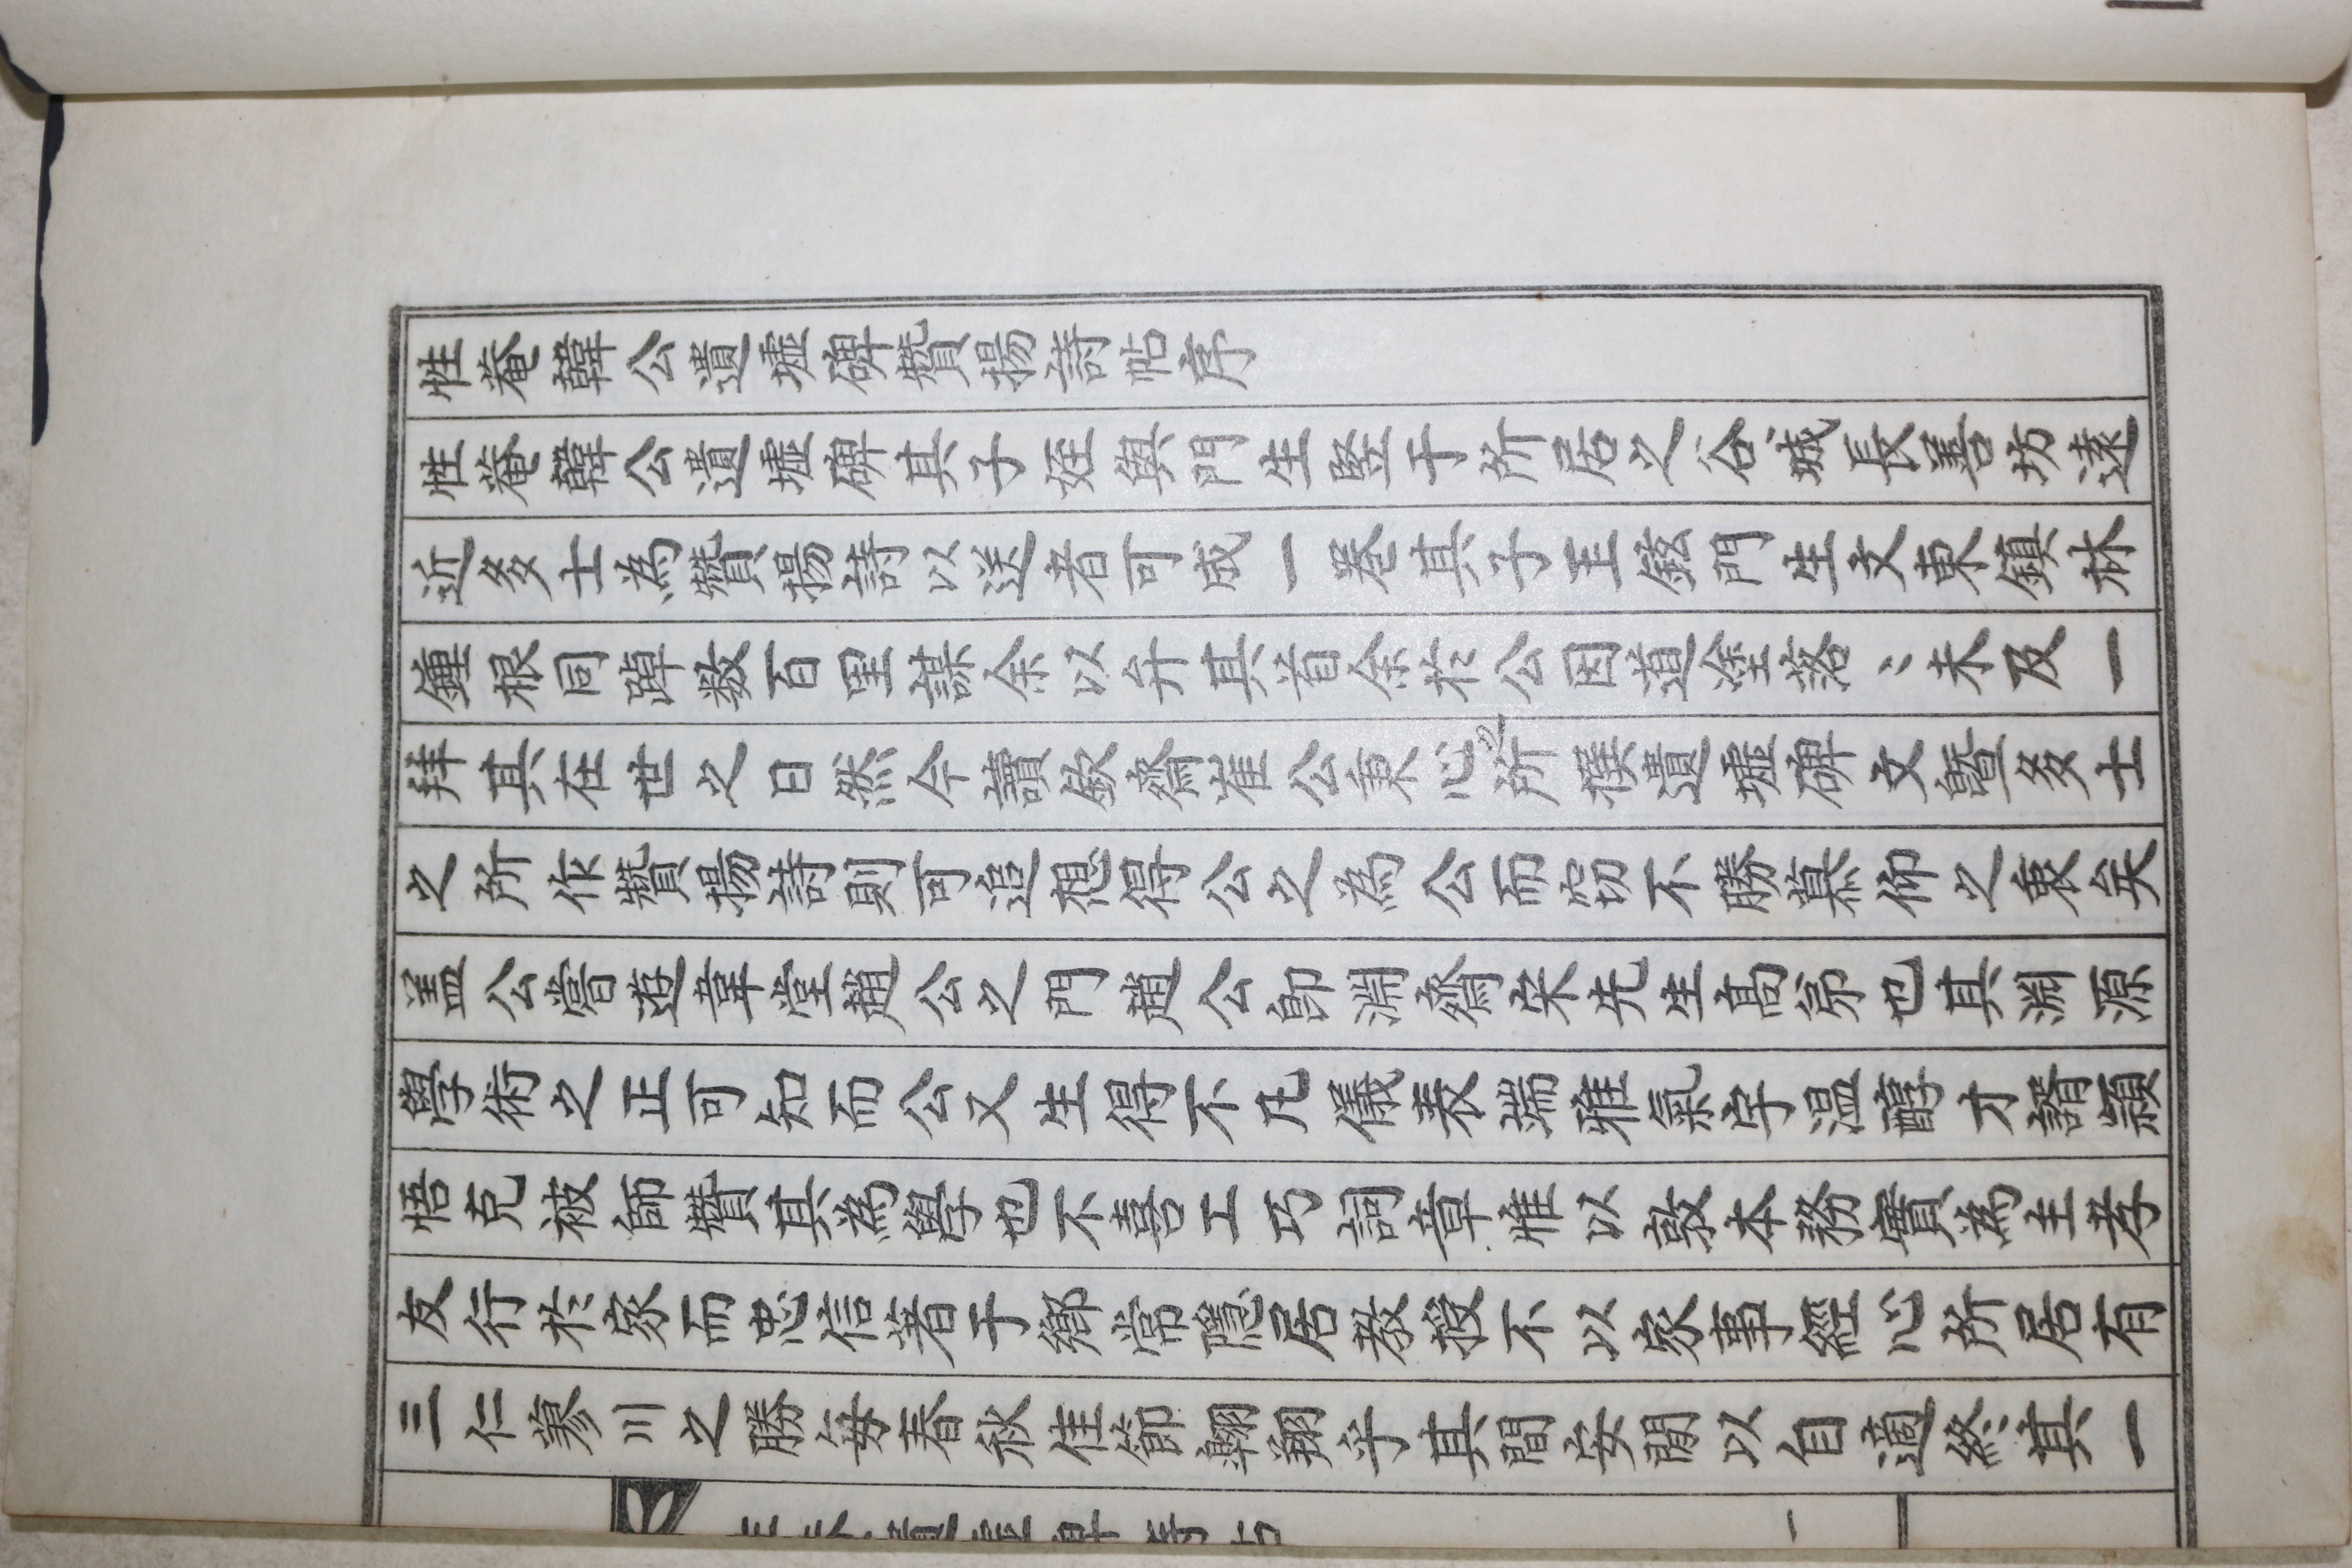 性菴韓公遺墟碑贊揚詩帖序
性菴韓公遺墟碑其子姪與門生竪于所居之谷城長善坊遠
近多士為贊揚詩以送者可成一巻其子玉鉉門生文東鎮林
鍾根同踔数百里謀余以弁其首余於公因道塗落〻未及一
拜其在世之日然今讀欽齋崔公秉心之所撰遺墟碑文曁多士
之所作贊揚詩則可追想得公之為公而窃不勝慕仰之衷矣
盖公嘗遊韋堂趙公之門趙公卽淵齋宋先生高弟也其淵源
學術之正可知而公又生得不凡儀表端雅氣宇温醇才諝穎
悟克被師贊其為學也不喜工巧詞章惟以敦本務實為主孝
友行於家而忠信著于鄉常隱居教授不以家事經心所居有
三仁蓼川之勝每春秋佳節翺翔乎其間安閒以自適終其一
一